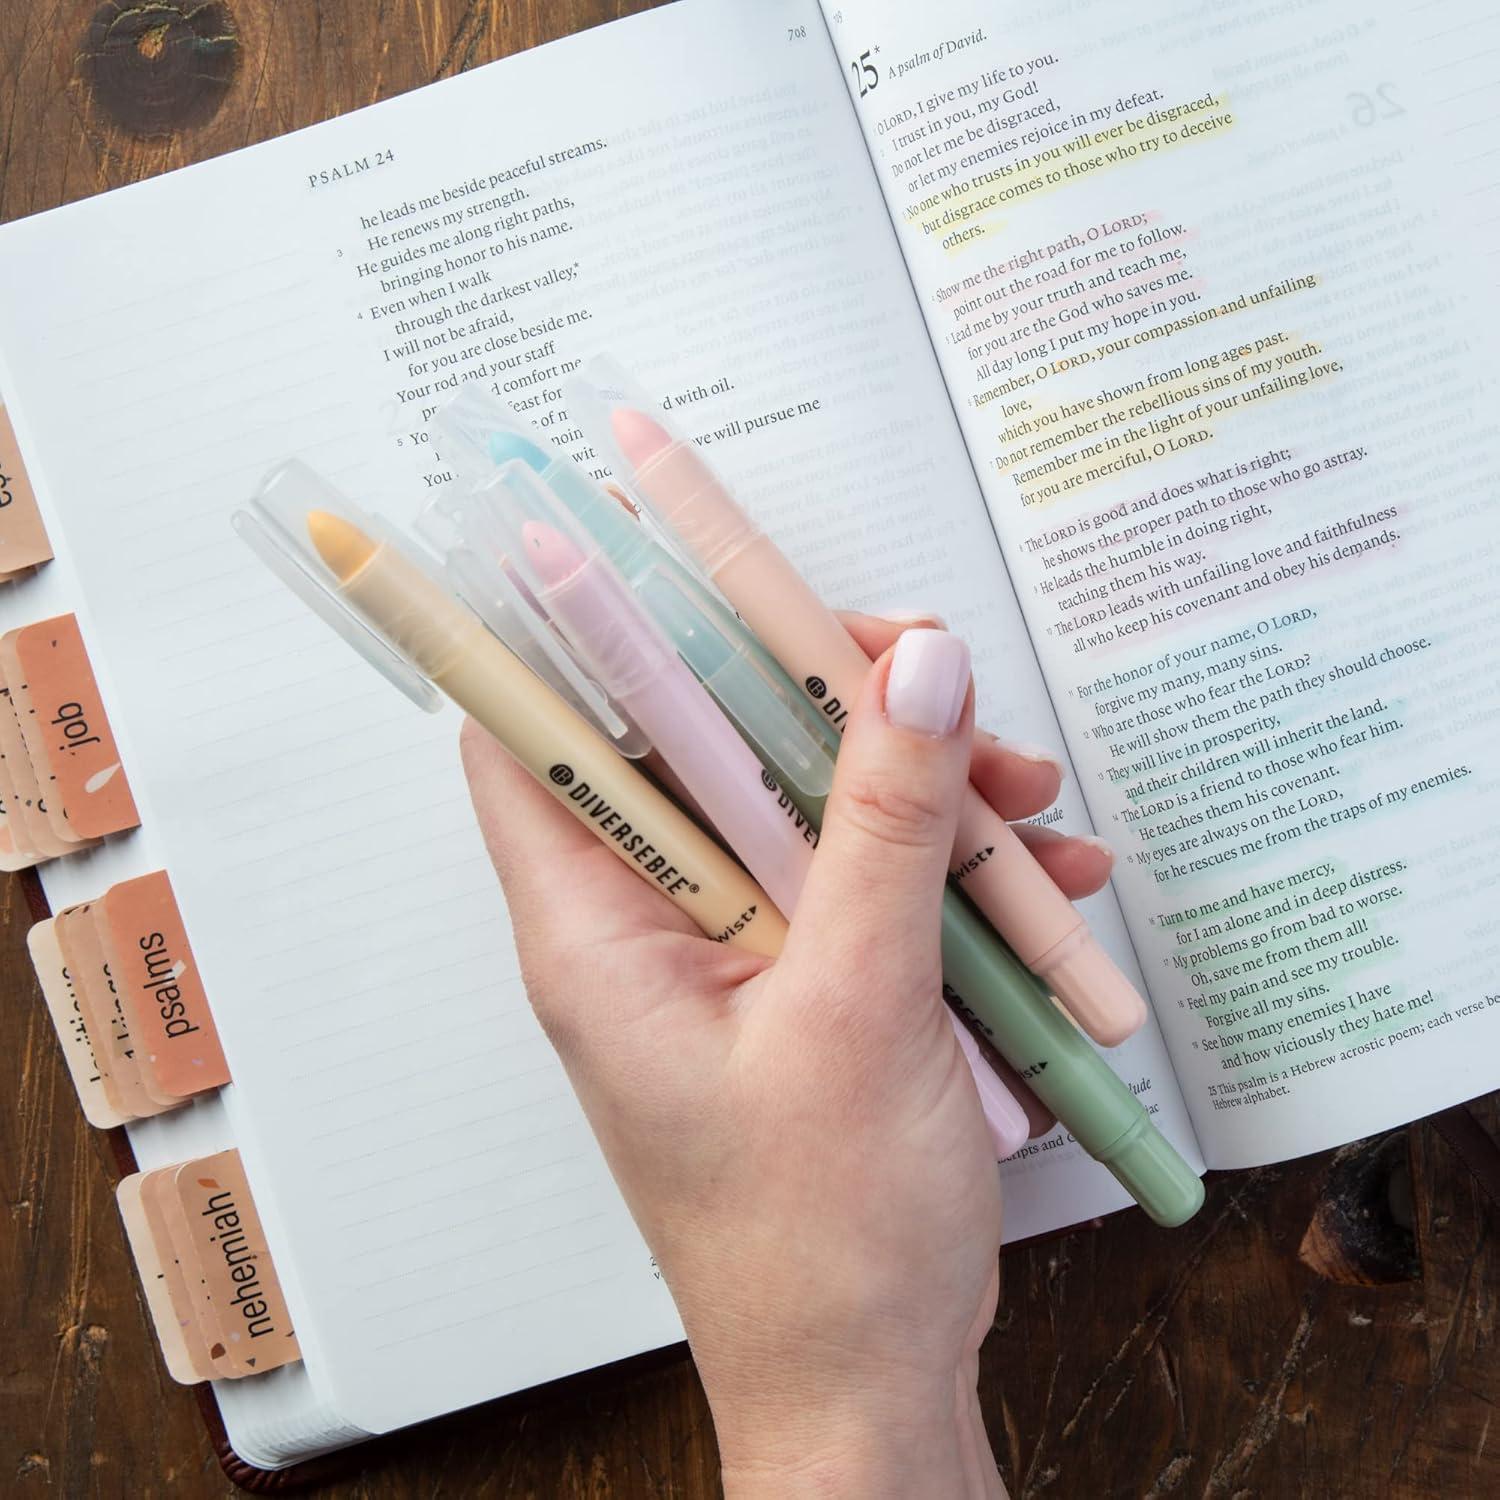 PSALM 24
708
he leads me beside peaceful streams.
He renews my strength.
3 He guides me along right paths,
bringing honor to his name.
4 Even when I walk
through the darkest valley,*
I will not be afraid,
for you are close beside me.
Your rod and your staff
comfort me
feast for
with oil.
will pursue me
You
25*
A psalm of David.
1 O LORD, I give my life to you.
2 I trust in you, my God!
Do not let me be disgraced,
or let my enemies rejoice in my defeat.
3 No one who trusts in you will ever be disgraced,
but disgrace comes to those who try to deceive
others.
4 Show me the right path, O LORD;
point out the road for me to follow.
5 Lead me by your truth and teach me,
for you are the God who saves me.
All day long I put my hope in you.
6 Remember, O LORD, your compassion and unfailing
love,
which you have shown from long ages past.
7 Do not remember the rebellious sins of my youth.
Remember me in the light of your unfailing love,
for you are merciful, O LORD.
8 The LORD is good and does what is right;
he shows the proper path to those who go astray.
9 He leads the humble in doing right,
teaching them his way.
10 The LORD leads with unfailing love and faithfulness
all who keep his covenant and obey his demands.
11 For the honor of your name, O LORD,
forgive my many, many sins.
12 Who are those who fear the LORD?
He will show them the path they should choose.
13 They will live in prosperity,
and their children will inherit the land.
14 The LORD is a friend to those who fear him.
He teaches them his covenant.
15 My eyes are always on the LORD,
for he rescues me from the traps of my enemies.
16 Turn to me and have mercy,
for I am alone and in deep distress.
17 My problems go from bad to worse.
Oh, save me from them all!
18 Feel my pain and see my trouble.
Forgive all my sins.
19 See how many enemies I have
and how viciously they hate me!
25 This psalm is a Hebrew acrostic poem; each verse
Hebrew alphabet.
job
psalms
nehemiah
B DIVERSEBEE®